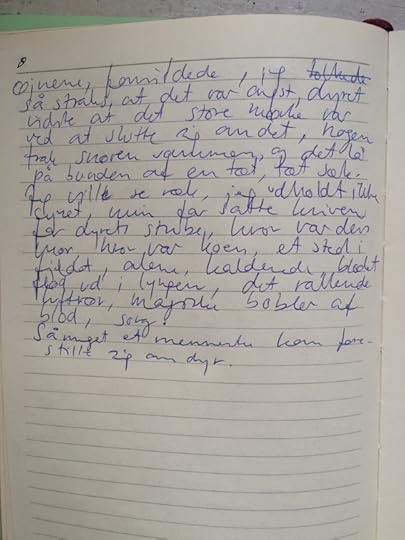 8
øjnene, formildede, jeg
så straks, at det var angst, dyret
vidste at det store mørke var
ved at slutte sig om det, nogen
trak snoren sammen, og det lå
på bunden af en tæt, tæt sæk.
Jeg ville se væk, jeg udholdt ikke
dyret, min far satte kniven
for dyrets strube, hvor var den
mor, hvor var koen, et sted i
fjeldet, alene, kaldende, blodet
flød ud i lyngen, det rallende
luftrør, bobler af
blod, sorg.
Så meget et menneske kan fore-
stille sig om dyr.